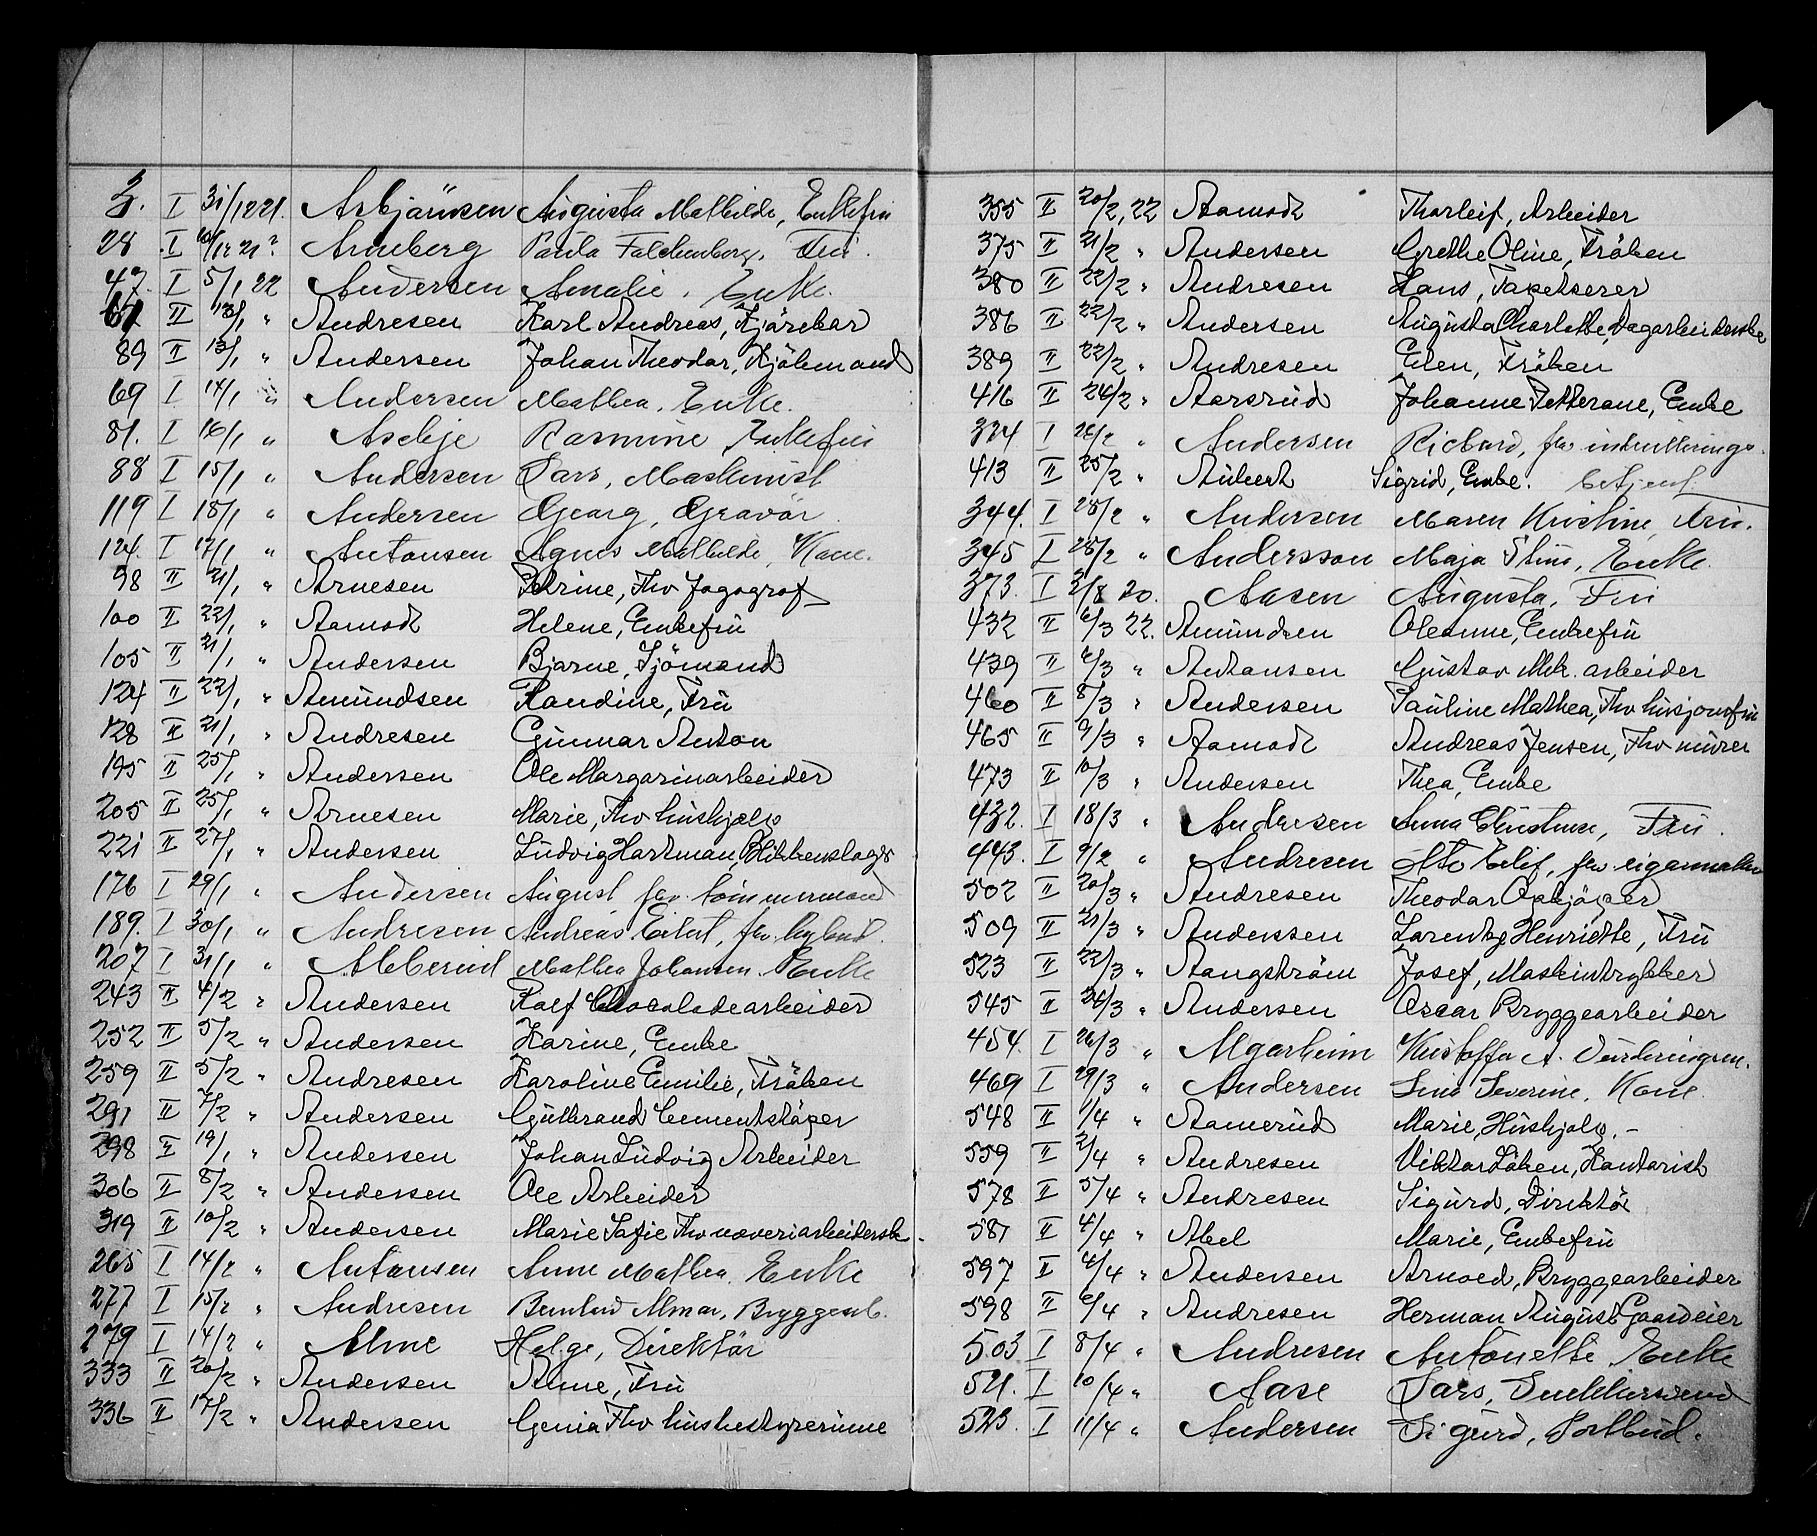 3. I 31/12 21. Asbjørnsen Augusta Mathilde, Enkefru
28 I 10/12 21? Armberg Paula Falchenborg, Fru.
47. I 5/1 22 Andersen Amalie, Enke.
67 II 13/1 " Andresen Karl Andreas, Kjørekar
89 II 13/1 " Andersen Johan Theodor, Kjøbmand
69 I 14/1 " Andersen Mathea, Enke.
81. I 16/1 " Asebje Rasmine, Enkefru
88 I 15/1 " Andersen Lars, Maskinist
119 I 18/1 " Andersen Georg, Gravør
124. I 17/1 " Antonsen Agnes Mathilde, Kone.
98 II 21/1 " Arnesen Petrine, Fhv Jogograf
100 II 22/1 " Aamodt Helene, Enkefru
105 II 21/1 " Andersen Bjarne, Sjömand
124 II 22/1 " Amundsen Randine, Fru
128 II 21/1 " Andresen Gunnar Anton
195 II 25/1 " Andersen Ole Margarinarbeider
205 II 25/1 " Arnesen Marie, Fhv hushjælp
221 II 27/1 " Andersen Ludvig Hartman, Blikkenslager
176 I 29/1 " Andersen August fhv. tömmermand
189. I 30/1 " Andresen Andreas Eilert, fhv. bybud
207 I 31/1 " Abberud Mathea Johansen. Enke
243 II 4/2 " Andersen Ralf Chocoladearbeider
252 II 5/2 " Andersen Karine, Enke
259 II 5/2 " Andresen Karoline Emilie, Fröken
291 II 7/2 " Andersen Gutbrand Cementstöper
298 II 19/1 " Andersen Johan Ludvig Arbeider
306 II 8/2 " Andersen Ole Arbeider
319 II 10/2 " Andersen Marie Sofie Fhv væveriarbeiderske
265 I 14/2 " Antonsen Anne Mathea. Enke
277 I 15/2 " Andresen Bernhard Almar, Bryggearb.
279 I 14/2 " Alme Helge, Direktør
333 II 20/2 " Andersen Anne, Fru
336 II 17/2 " Andersen Genia Fhv husbestyrerinne
355 II 20/2, 22 Aamodt Thorleif, Arbeider
375 II 21/2 " Andersen Grethe Oline, Fröken
380 II 22/2 " Andresen Hans, Tapetserer
386 II 22/2 " Andersen Augusta Charlotte, Dagarbeiderske
389 II 22/2 " Andresen Elen, Fröken
416 II 26/2 " Aarsrud Johanne Petterane, Enke
334 I 26/2 " Andersen Richard, fhv. inkvitterings-
413 II 25/2 " Aubert Sigrid, Enke. betjent
344. I 28/2 " Andersen Maren Kristine, Fru.
345 I 28/2 " Andersson Maja Stina, Enke.
373. I 3/8 20. Aasen Augusta, Fru
432 II 6/3 22. Amundsen Oleanne, Enkefru
439 II 6/3 " Antonsen Gustav Mek. arbeider
460 II 8/3 " Andersen Pauline Mathea, Fhv husjomfru
465 II 9/3 " Aamodt Andreas Jensen, Fhv murer
473 II 10/3 " Andersen Thea, Enke
432. I 18/3 " Andersen Anna Christine, Fru.
443. I 9/2 " Andresen Otto Eilif, fhv. cigarmaker
502 II 20/3 " Andresen Theodor Opkjøper
509 II 21/3 " Anderssen Larentze Henriette, Fru
523 II 22/3 " Aangström Josef, Maskintrykker
545 II 26/3 " Andersen Oscar Bryggearbeider
454. I 26/3 " Algarheim Kristoffer A. Vurderingsm.
469 I 29/3 " Andersen Lina Severine. Kone
548 II 1/4 " Aamerud Marie, Hushjelp. -
559 II 2/4 " Andresen Viktor Löken, Kontorist
578 II 5/4 " Andresen Sigurd, Direktör
581 II 4/4 " Abel Marie, Enkefru
597 II 4/4 " Andersen Arnold, Bryggearbeider
598 II 6/4 " Andresen Herman August Gaardeier
503 I 8/4 " Andresen Antonette, Enke
521. I 10/4 " Aase Lars, Snekkersvend
523. I 11/4 " Andersen Sigurd, Postbud.